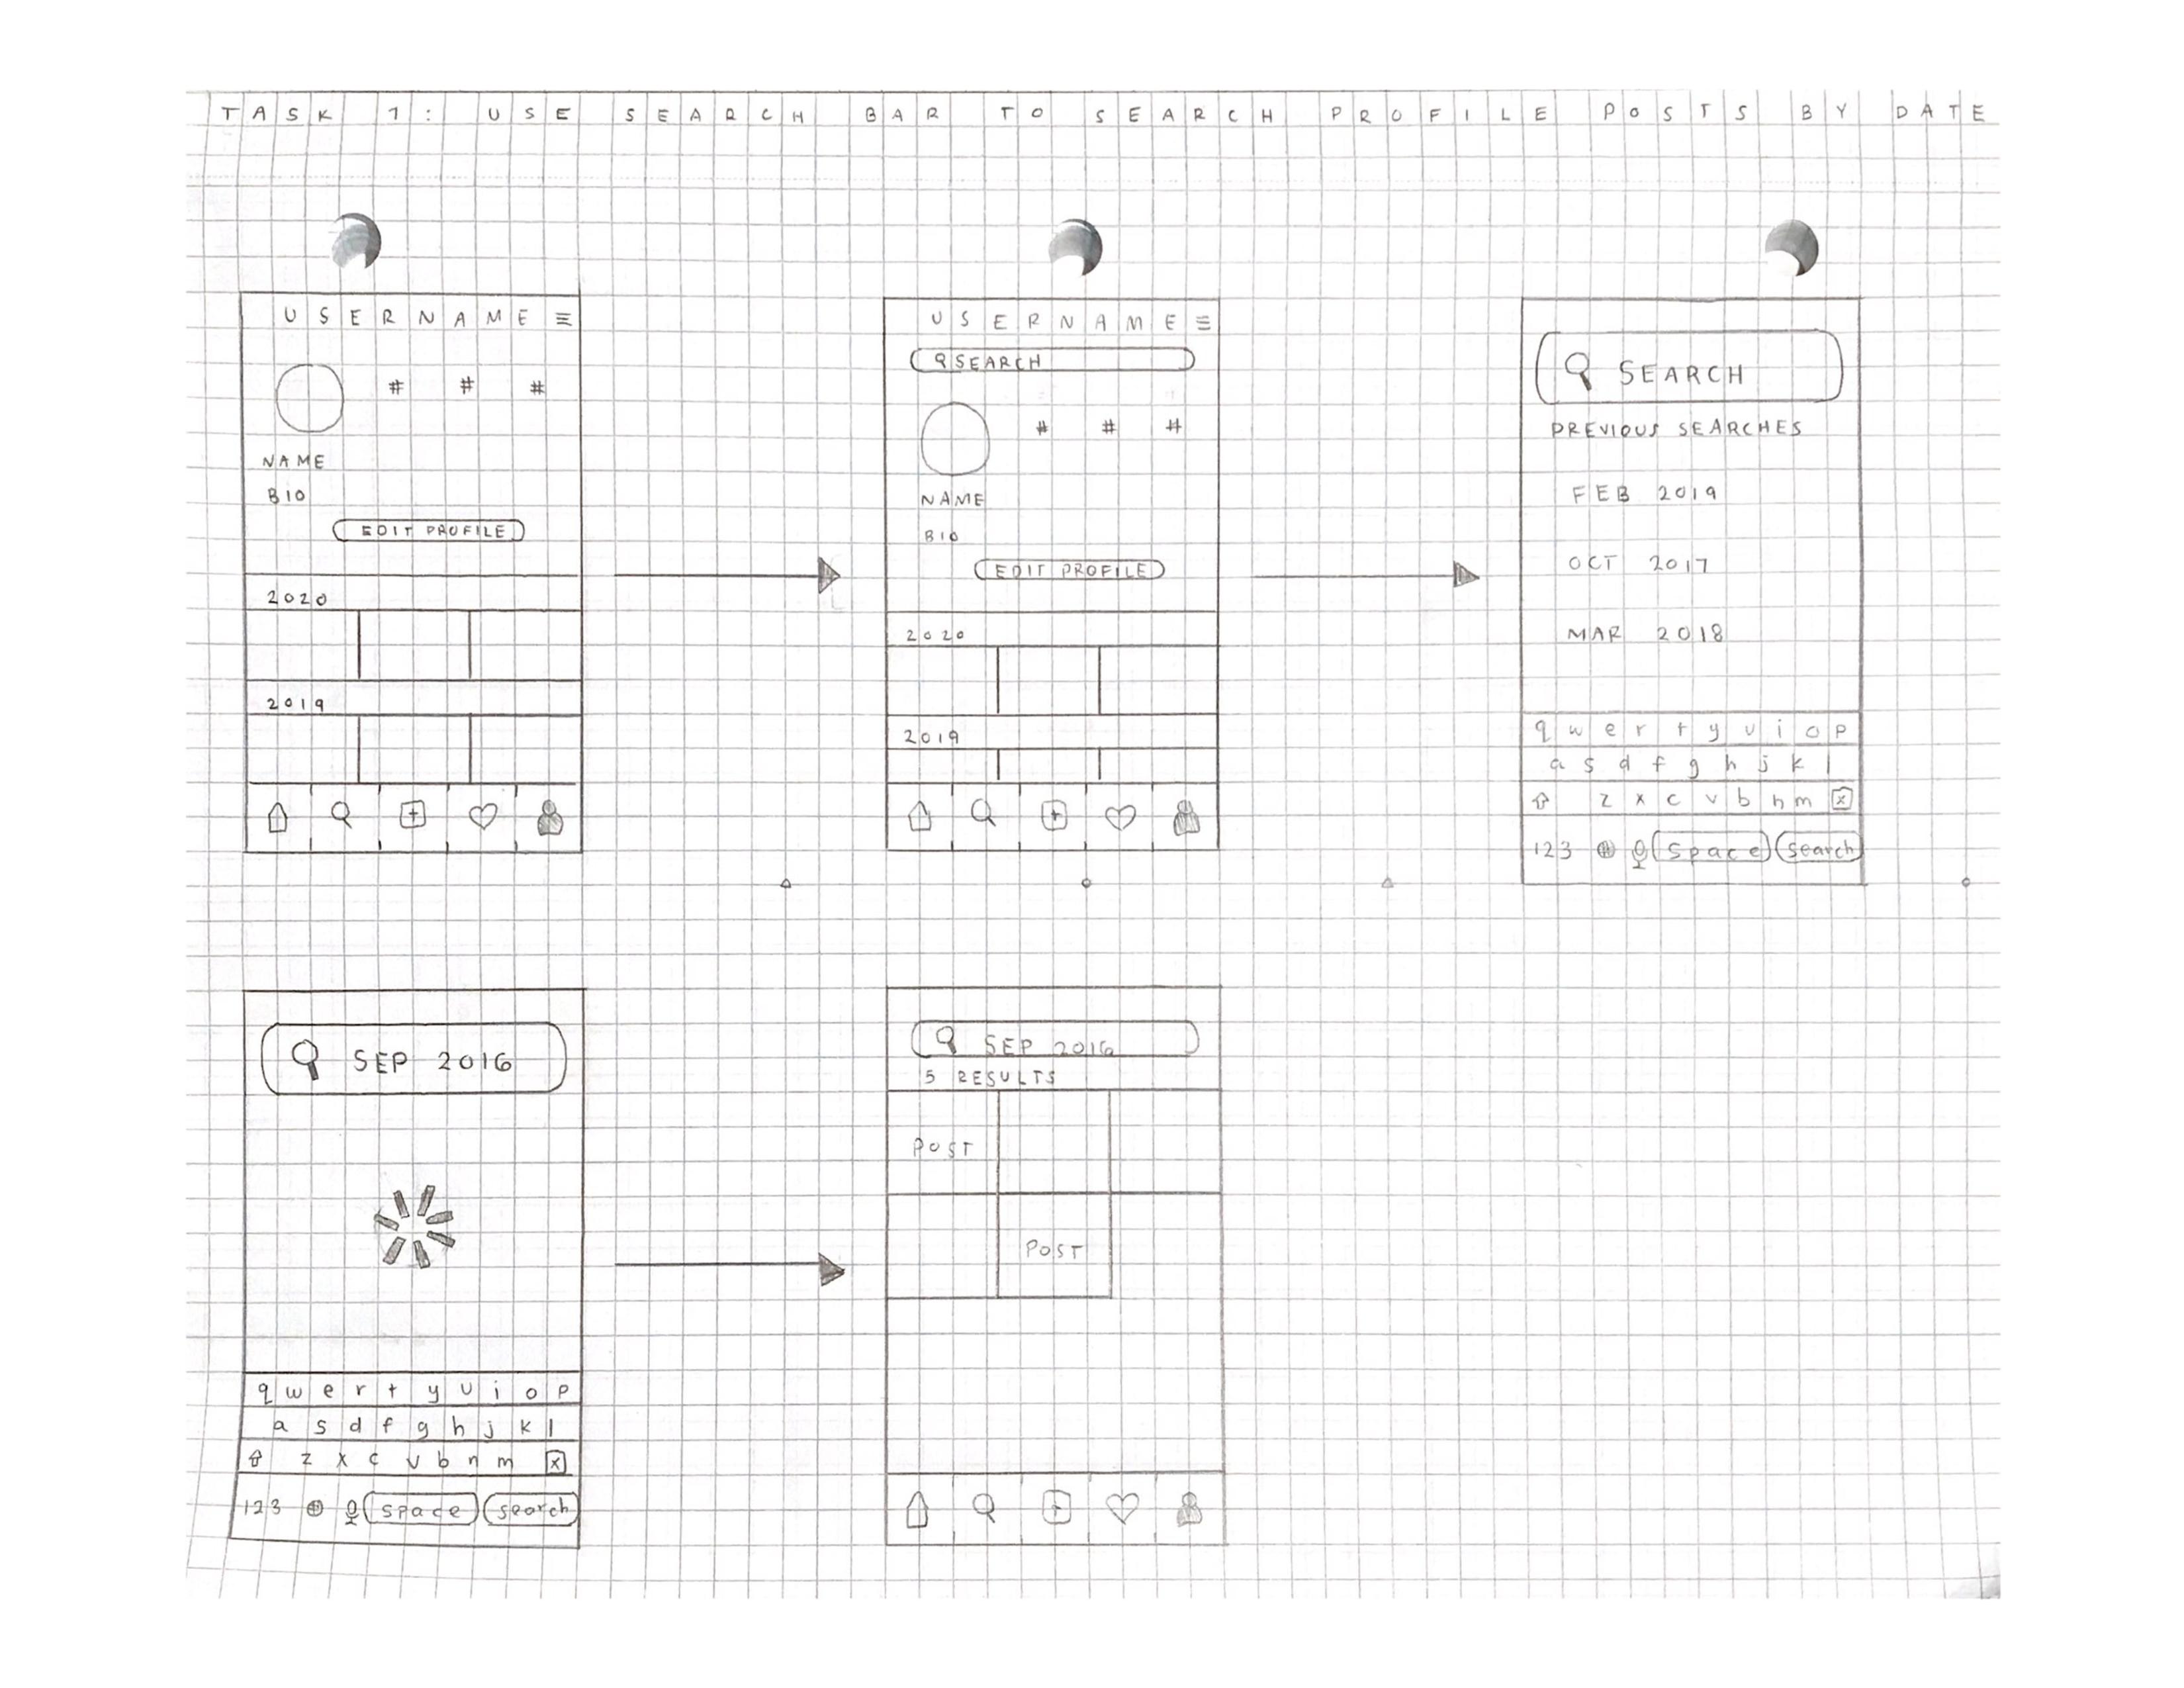 TASK 1: USE SEARCH BAR TO SEARCH PROFILE POSTS BY DATE
USERNAME
# # #
NAME
BIO
EDIT PROFILE
2020
2019
USERNAME
SEARCH
# # #
NAME
BIO
EDIT PROFILE
2020
2019
SEARCH
PREVIOUS SEARCHES
FEB 2019
OCT 2017
MAR 2018
q w e r t y u i o p
a s d f g h j k l
z x c v b n m x
123 space search
SEP 2016
q w e r t y u i o p
a s d f g h j k l
z x c v b n m x
123 space search
SEP 2016
5 RESULTS
POST
POST